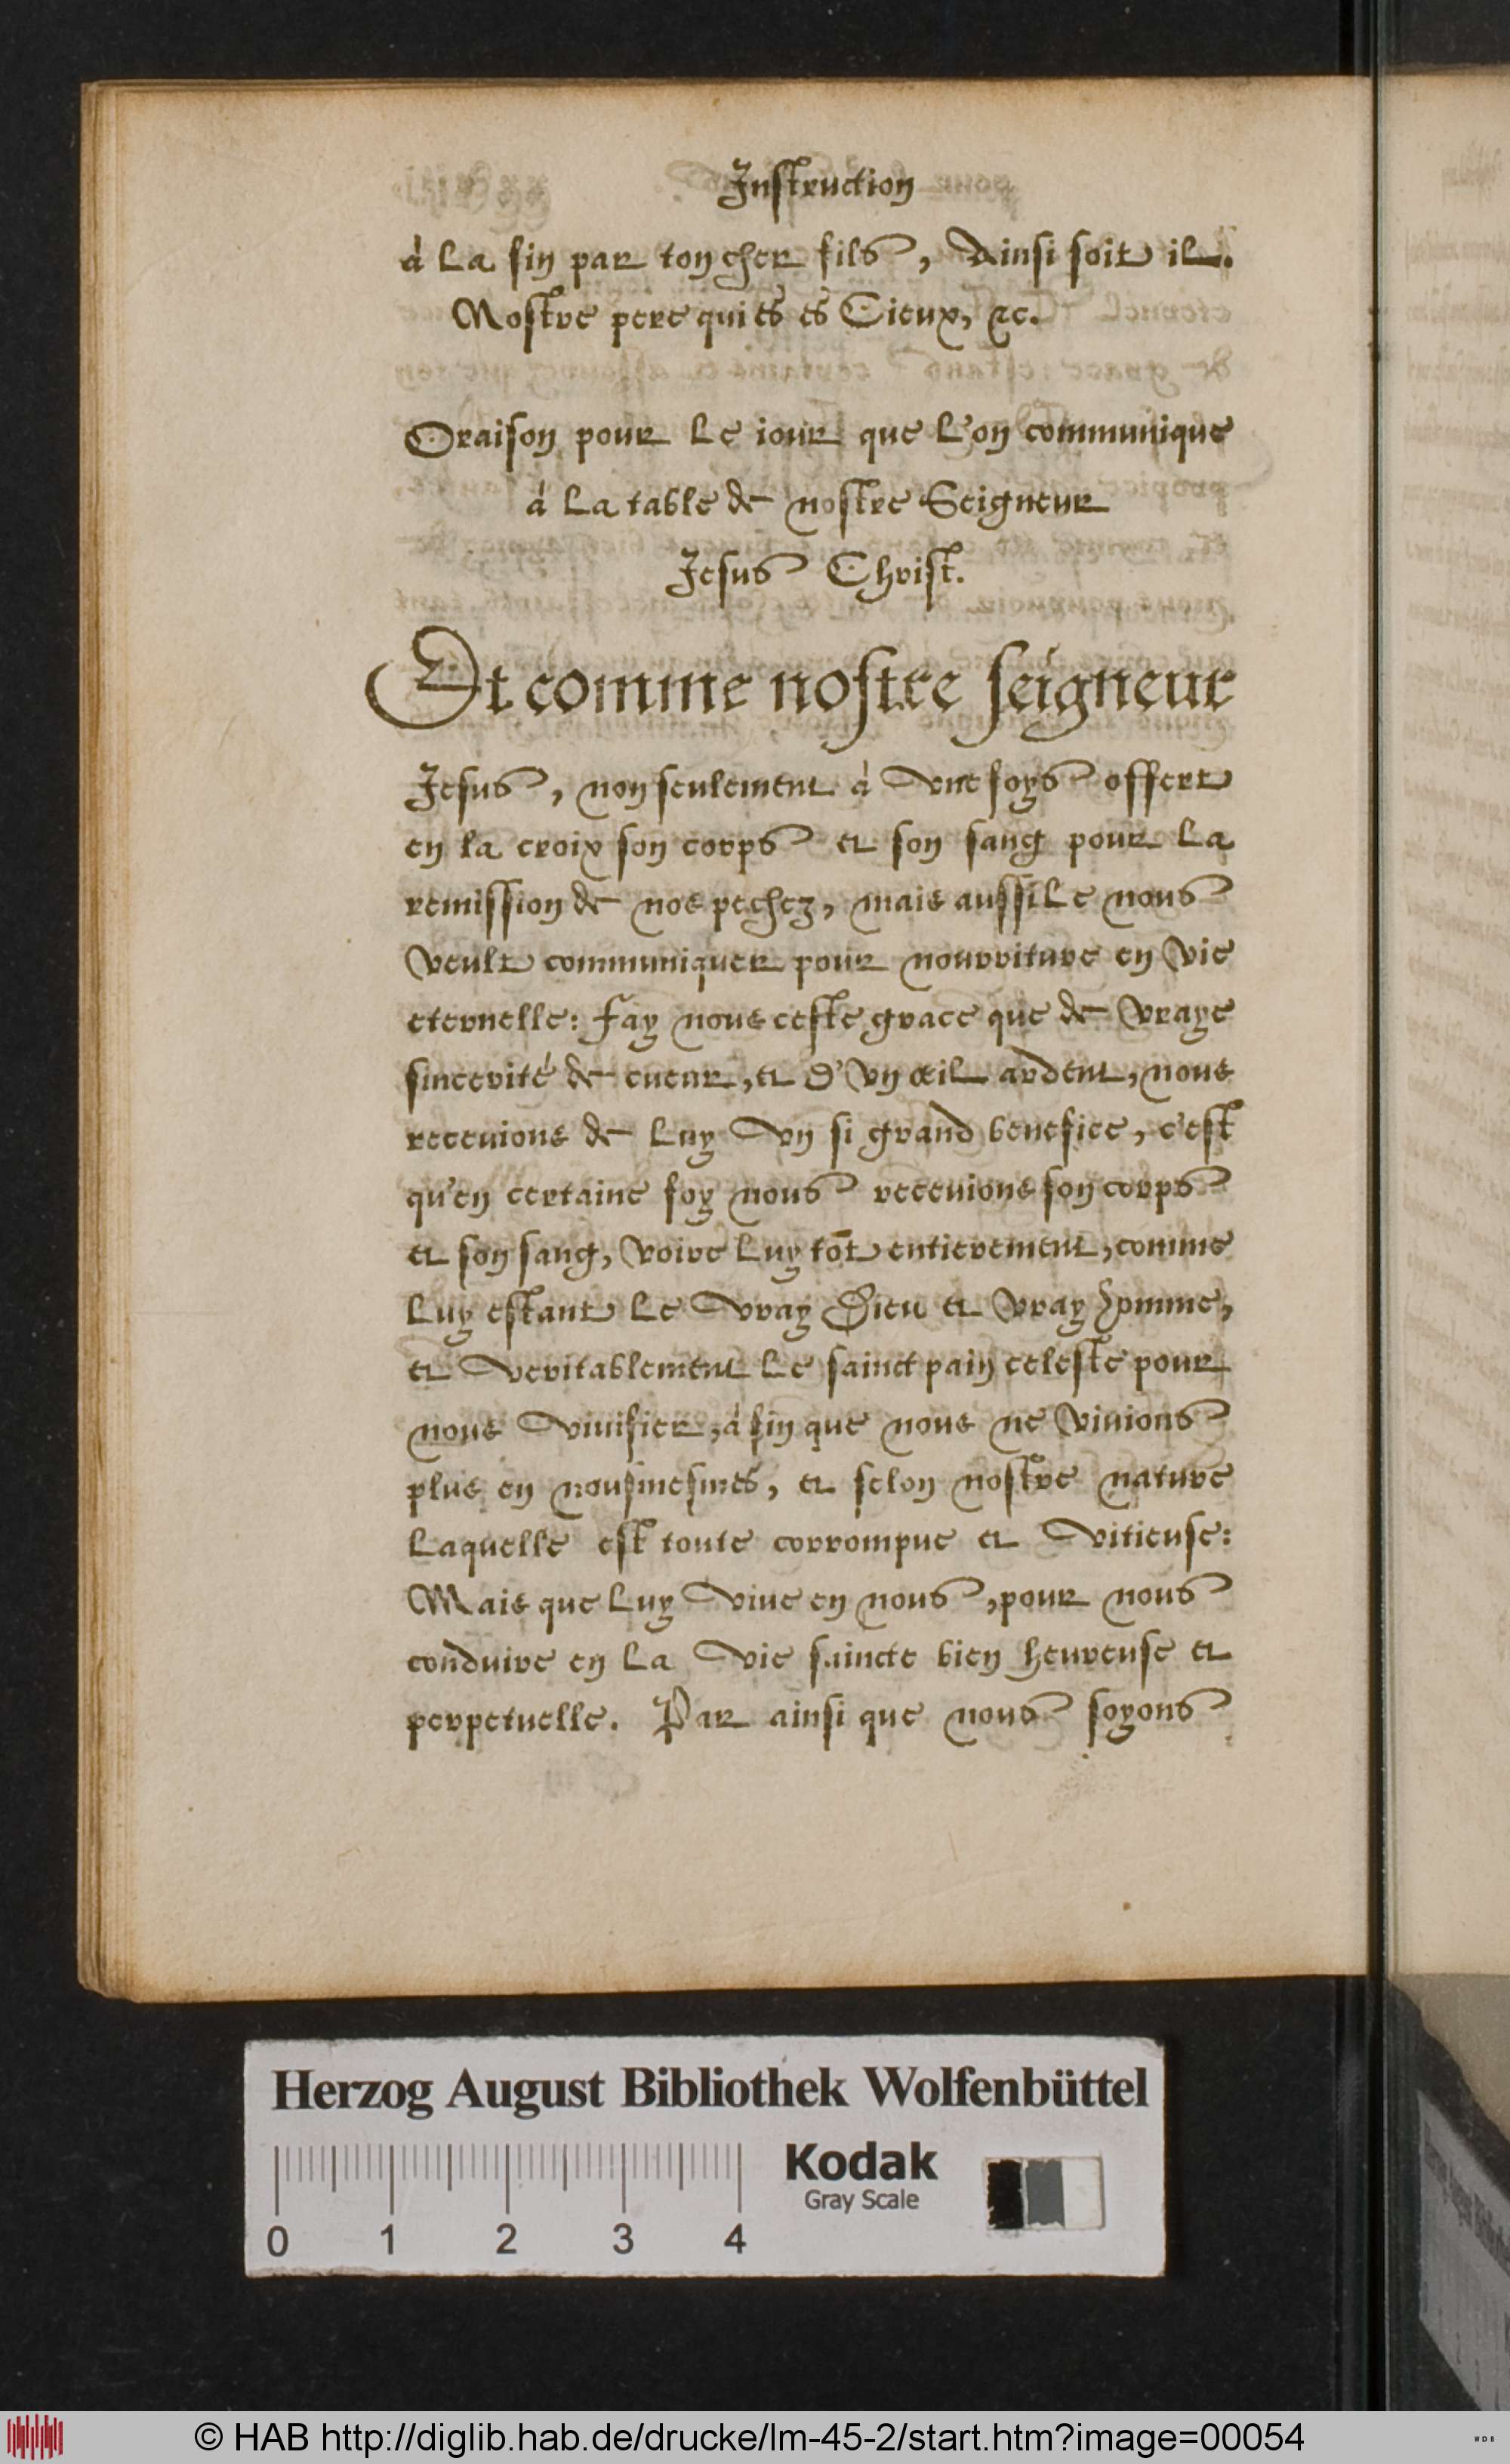 Instruction
à la fin par ton cher fils, Ainsi soit il.
Nostre pere qui és és Cieux, &c.
Oraison pour le iour que l'on communique
à la table de nostre Seigneur
Jesus Christ.
Et comme nostre seigneur
Jesus, non seulement à vne foys offert
en la croix son corps et son sang pour la
remission de nos pechez, mais aussi le nous
veult communiquer pour nourriture en vie
eternelle: fay nous ceste grace que de vraye
sincerité de cueur, et d'vn œil ardent, nous
receuions de luy vn si grand benefice, c'est
qu'en certaine foy nous receuions son corps
et son sang, voire luy tōt entierement, comme
luy estant le vray Dieu et vray homme,
et veritablement le sainct pain celeste pour
nous viuifier, à fin que nous ne viuions
plus en nousmesmes, et selon nostre nature
laquelle est toute corrompue et vitieuse:
Mais que luy viue en nous, pour nous
conduire en la vie saincte bien heureuse et
perpetuelle. Par ainsi que nous soyons
Herzog August Bibliothek Wolfenbüttel
Kodak
Gray Scale
0 1 2 3 4
© HAB http://diglib.hab.de/drucke/lm-45-2/start.htm?image=00054
WDB